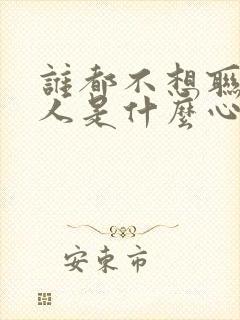 誰都不想聯
人是什麼心
安東市